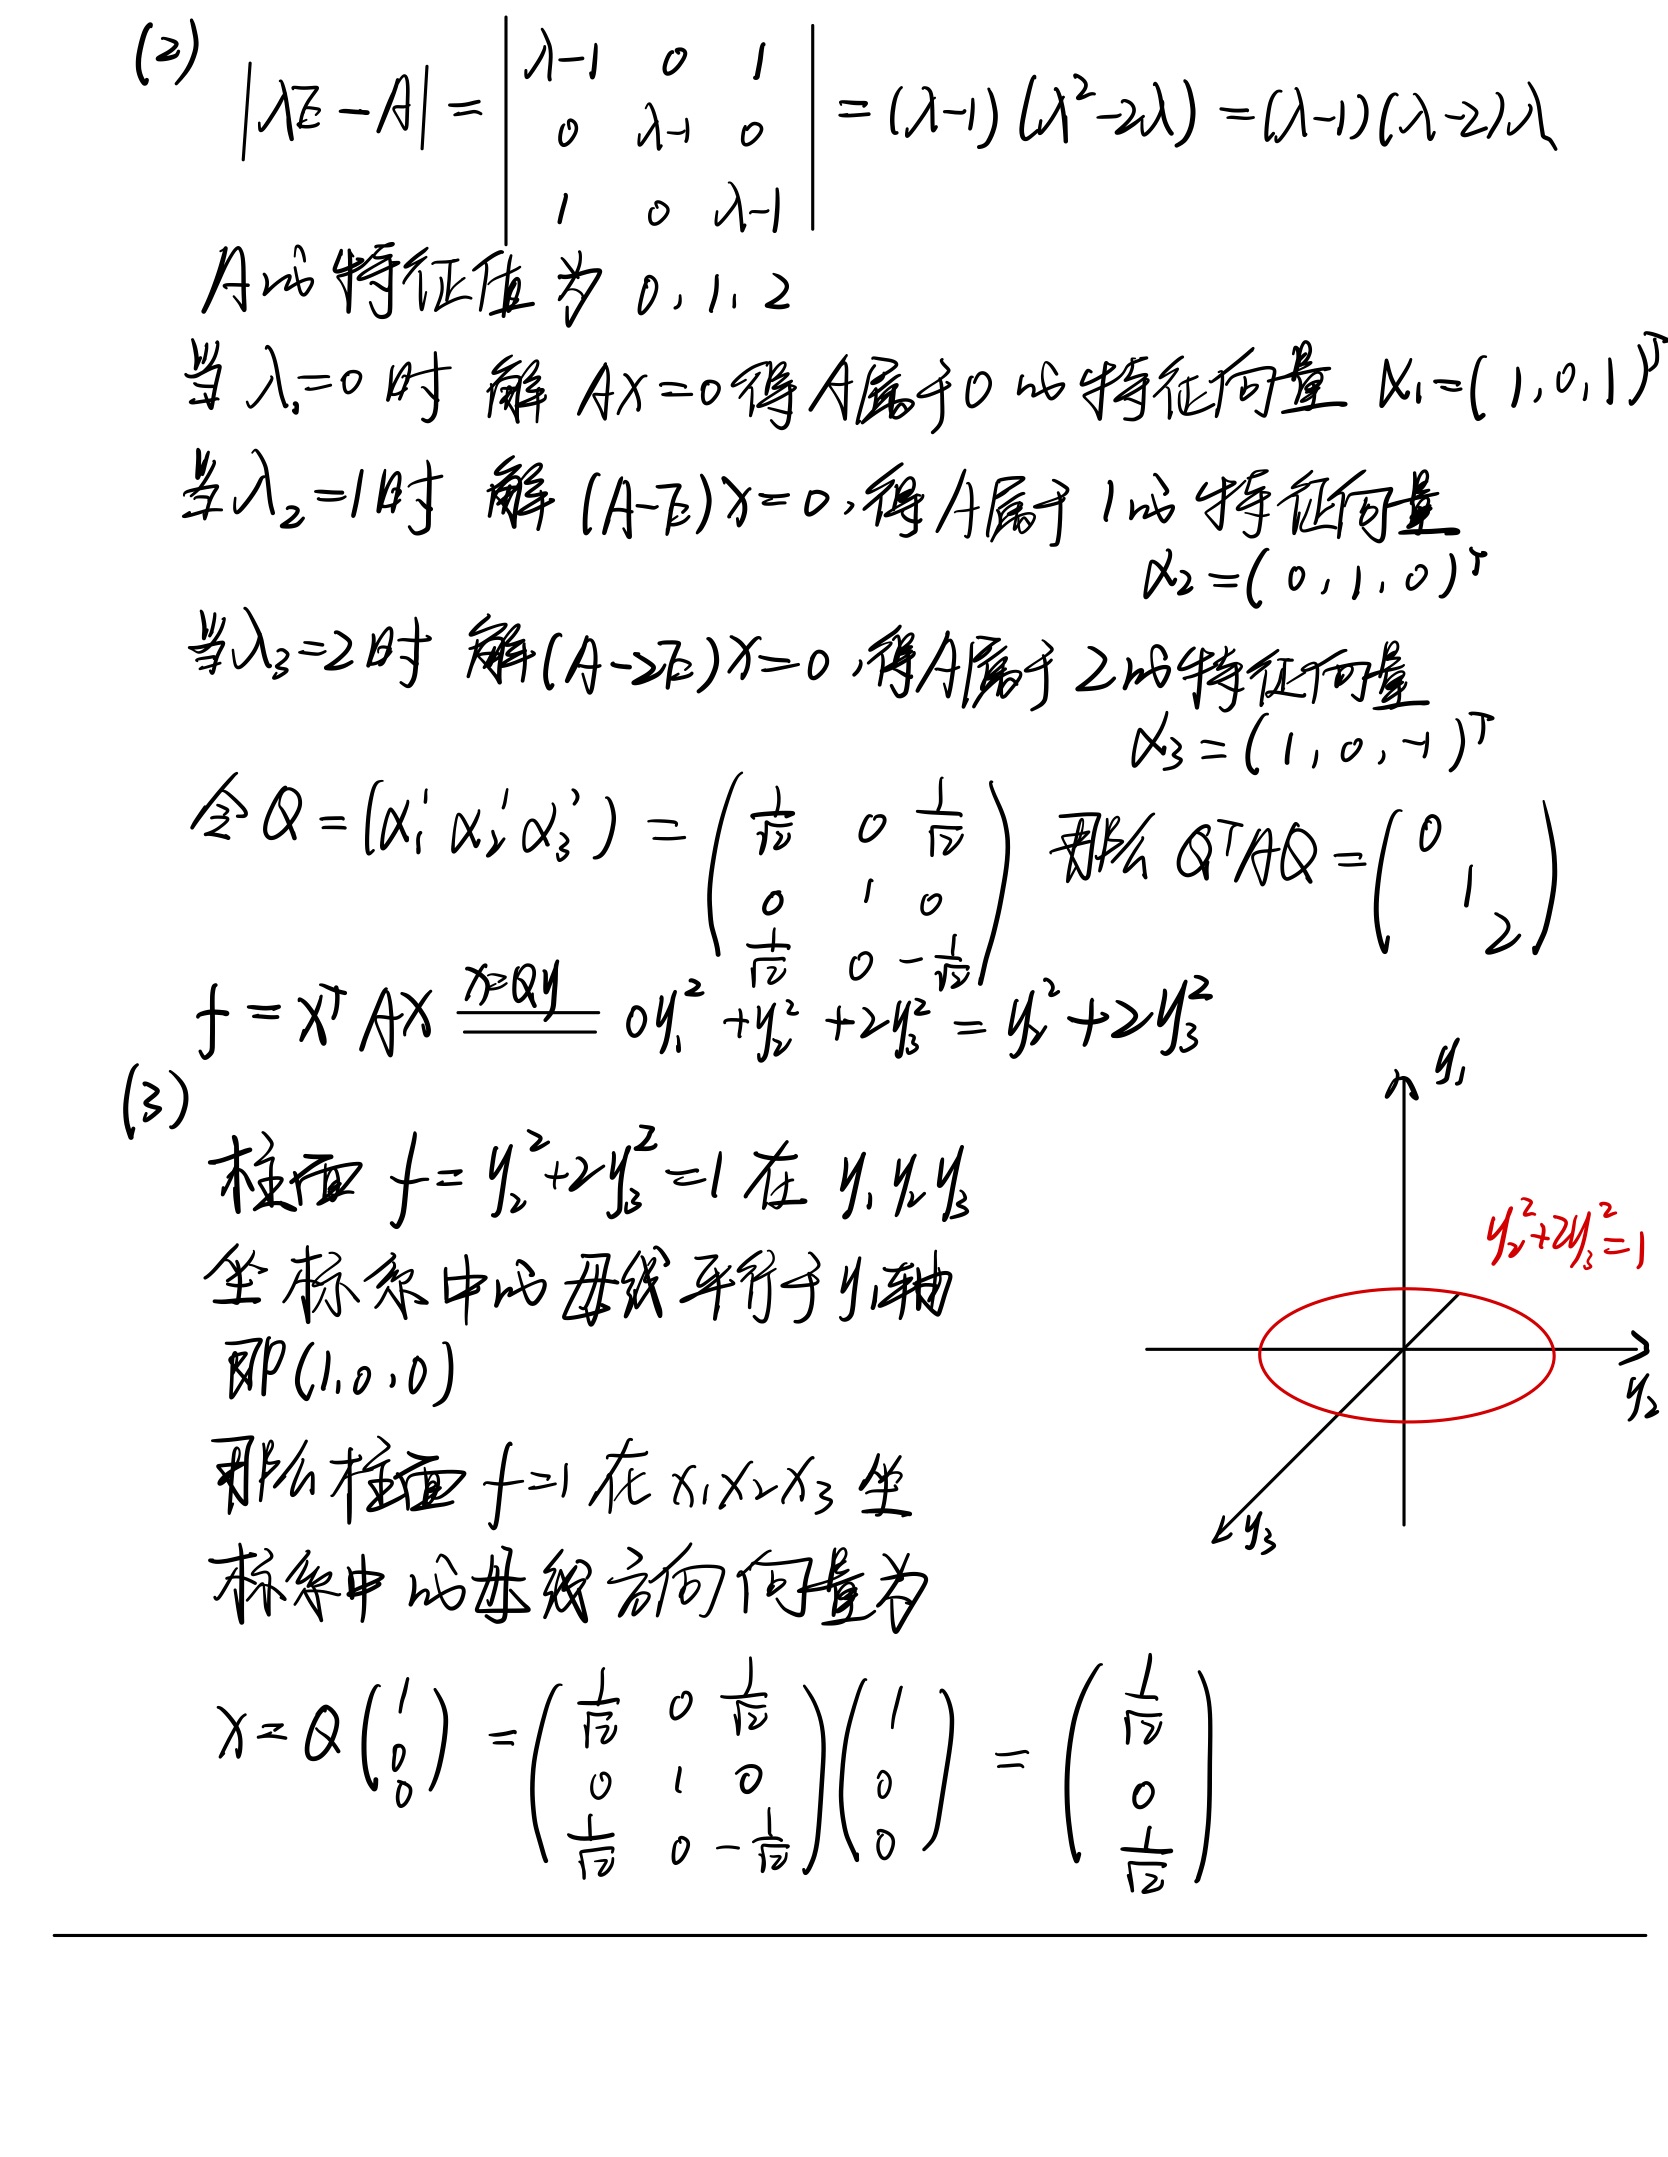 (2)
|λE-A| = | λ-1 0 1 | = (λ-1)(λ²-2λ) = (λ-1)(λ-2)λ
0 λ-1 0
1 0 λ-1
A的特征值为 0, 1, 2
当λ₁=0时 解 AX=0得A属于0的特征向量 α₁=(1,0,1)ᵀ
当λ₂=1时 解 (A-E)X=0,得A属于1的特征向量
α₂=(0,1,0)ᵀ
当λ₃=2时 解(A-2E)X=0,得A属于2的特征向量
α₃=(1,0,-1)ᵀ
令Q=(α₁' α₂' α₃') = ( 1/√2 0 1/√2 ) 那么 QᵀAQ = ( 0
0 1 0 1
1/√2 0 -1/√2 2 )
f = XᵀAX x=Qy 0y₁² + y₂² + 2y₃² = y₂² + 2y₃²
(3)
柱面 f = y₂²+2y₃²=1 在 y₁y₂y₃
坐标系中的母线平行于y₁轴
即(1,0,0)
那么柱面 f=1 在 x₁x₂x₃ 坐
标系中的母线方向向量为
X = Q ( 1 ) = ( 1/√2 0 1/√2 ) ( 1 ) = ( 1/√2 )
0 0 1 0 0 0
0 1/√2 0 -1/√2 0 1/√2
y₁
y₂²+2y₃²=1
y₂
y₃